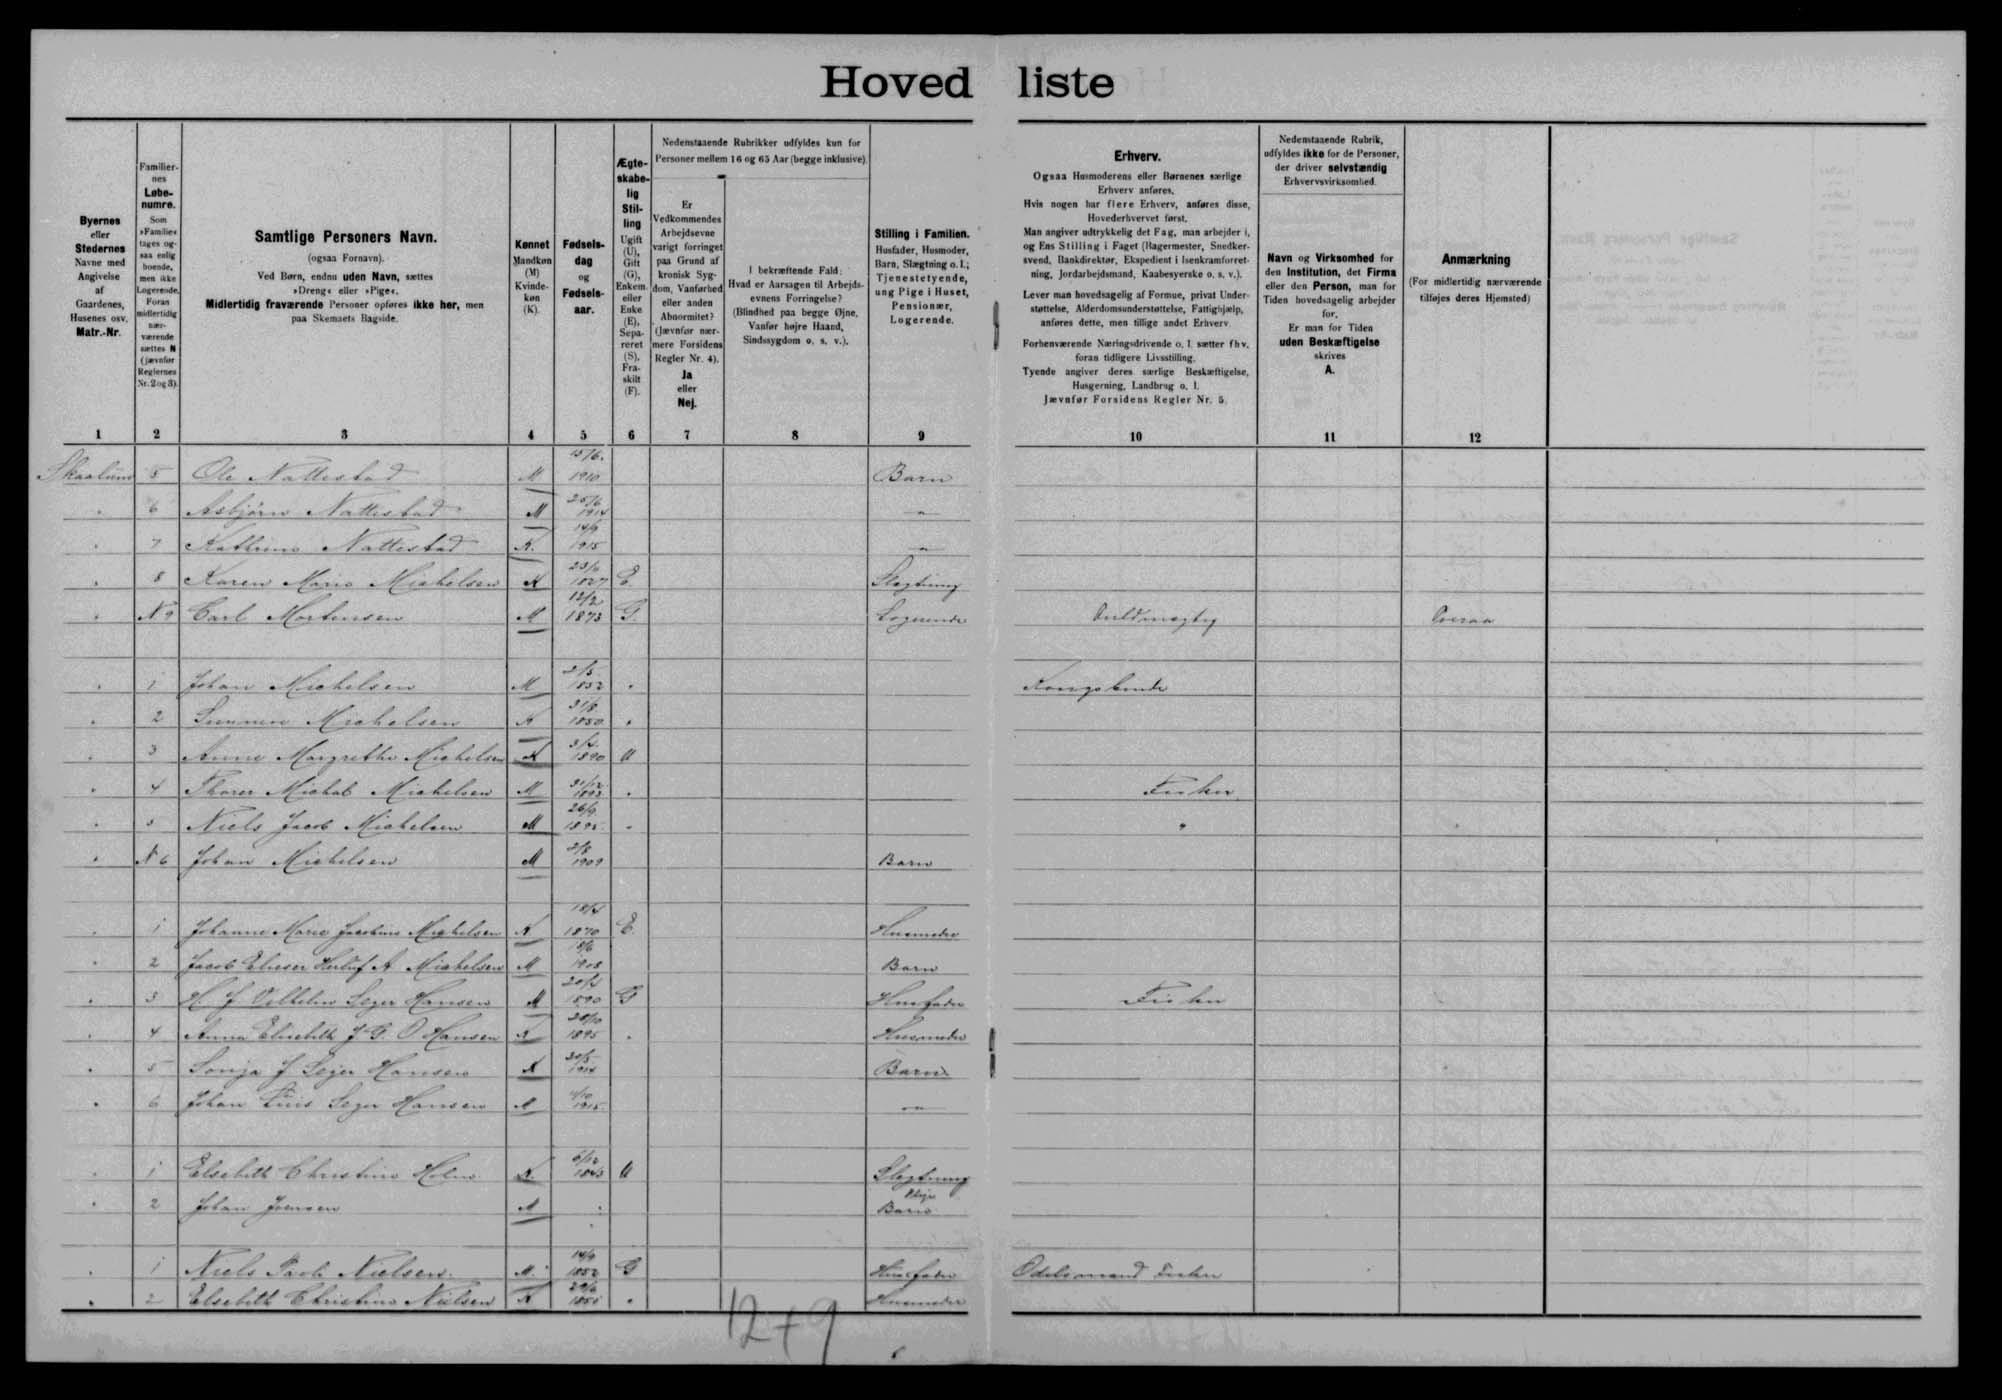 Hoved liste
Byernes
eller
Stedernes
Navne med
Angivelse
af
Gaardenes,
Husenes osv.
Matr.-Nr.
Familier-
nes
Løbe-
numre.
Som
»Familie«
tages og-
saa enlig
boende,
men ikke
Logerende.
Foran
midlertidig
nær-
værende
sættes N
(jævnfør
Reglernes
Nr. 2 og 3).
Samtlige Personers Navn.
(ogsaa Fornavn).
Ved Børn, endnu uden Navn, sættes
»Dreng« eller »Pige«.
Midlertidig fraværende Personer opføres ikke her, men
paa Skemaets Bagside.
Kønnet
Mandkøn
(M)
Kvinde-
køn
(K).
Fødsels-
dag
og
Fødsels-
aar.
Ægte-
skabe-
lig
Stil-
ling
Ugift
(U),
Gift
(G),
Enkem.
eller
Enke
(E),
Sepa-
reret
(S),
Fra-
skilt
(F).
Nedenstaaende Rubrikker udfyldes kun for
Personer mellem 16 og 65 Aar (begge inklusive).
Er
Vedkommendes
Arbejdsevne
varigt forringet
paa Grund af
kronisk Syg-
dom, Vanførhed
eller anden
Abnormitet?
(Jævnfør nær-
mere Forsidens
Regler Nr. 4).
Ja
eller
Nej.
I bekræftende Fald:
Hvad er Aarsagen til Arbejds-
evnens Forringelse?
(Blindhed paa begge Øjne,
Vanfør højre Haand,
Sindssygdom o. s. v.).
Stilling i Familien.
Husfader, Husmoder,
Barn, Slægtning o. l.;
Tjenestetyende,
ung Pige i Huset,
Pensionær,
Logerende.
Erhverv.
Ogsaa Husmoderens eller Børnenes særlige
Erhverv anføres.
Hvis nogen har flere Erhverv, anføres disse,
Hovederhvervet først.
Man angiver udtrykkelig det Fag, man arbejder i,
og Ens Stilling i Faget (Bagermester, Snedker-
svend, Bankdirektør, Ekspedient i Isenkramforret-
ning, Jordarbejdsmand, Kaabesyerske o. s. v.).
Lever man hovedsagelig af Formue, privat Under-
støttelse, Alderdomsunderstøttelse, Fattighjælp,
anføres dette, men tillige andet Erhverv.
Forhenværende Næringsdrivende o. l. sætter fhv.
foran tidligere Livsstilling.
Tyende angiver deres særlige Beskæftigelse,
Husgerning, Landbrug o. l.
Jævnfør Forsidens Regler Nr. 5.
Nedenstaaende Rubrik,
udfyldes ikke for de Personer,
der driver selvstændig
Erhvervsvirksomhed.
Navn og Virksomhed for
den Institution, det Firma
eller den Person, man for
Tiden hovedsagelig arbejder
for.
Er man for Tiden
uden Beskæftigelse
skrives
A.
Anmærkning
(For midlertidig nærværende
tilføjes deres Hjemsted)
1 2 3 4 5 6 7 8 9 10 11 12
5 Ole Nattestad M 15/6. 1910 Barn
" 6 Asbjörn Nattestad M 25/6 1914 "
" 7 Kathrine Nattestad K. 14/9 1915 "
" 8 Karen Marie Michelsen K 1827 E. Slægtning
" N 9 Carl Mortensen M 12/2 1873 G. Logerende
" 1 Johan Michelsen M 2/5 1852 " Kongsbonde
" 2 Michelsen K 31/8 1850 "
" 3 Anne Margrethe Michelsen K 3/4 1890 U
" 4 Michelsen M 31/12 1893 " Fisker
" 5 Niels Jacob Michelsen M 26/9 1895 " "
" N 6 Johan Michelsen M 2/8 1909 Barn
" 1 Johanne Marie Jacobine Michelsen K 1870 E. Husmoder
" 2 Jacob Elieser Herluf A. Michelsen M 1908 Barn
" 3 H. J. Vilhelm Seger Hansen M 1890 G Husfader Fisker
" 4 Anna Elisebeth J. G. O Hansen K 28/10 1895 " Husmoder
" 5 Sonja J Hansen K 30/5 1914 Barn
" 6 Johan Hansen M 1915. "
" 1 Elsebeth Christine Holm K. 6/12 1843 U Slægtning
" 2 Johan Joensen M Pleje Barn
" 1 Niels Pauli Nielsen. M. 14/9 1852 G Husfader Odelsmand Fisker
" 2 Elsebeth Christine Nielsen K 1855 " Husmoder
12+9